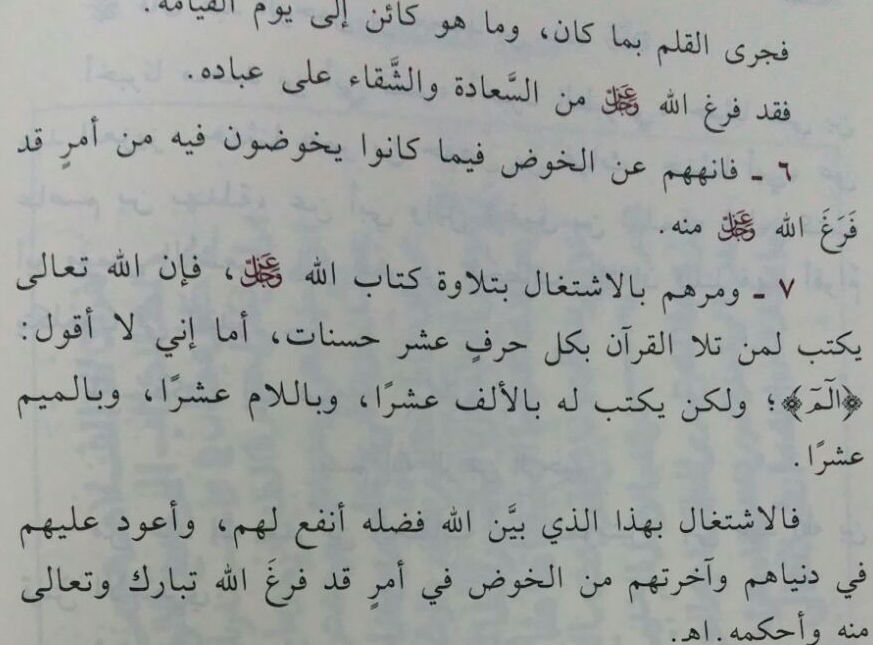 فجرى القلم بما كان، وما هو كائن إلى يوم القيامة.
فقد فرغ الله عَزَّوَجَلَّ من السَّعادة والشَّقاء على عباده.
٦ - فانههم عن الخوض فيما كانوا يخوضون فيه من أمرٍ قد
فَرَغَ الله عَزَّوَجَلَّ منه.
٧ - ومرهم بالاشتغال بتلاوة كتاب الله عَزَّوَجَلَّ، فإن الله تعالى
يكتب لمن تلا القرآن بكل حرفٍ عشر حسنات، أما إني لا أقول:
﴿الٓمٓ﴾؛ ولكن يكتب له بالألف عشرًا، وباللام عشرًا، وبالميم
عشرًا.
فالاشتغال بهذا الذي بيَّن الله فضله أنفع لهم، وأعود عليهم
في دنياهم وآخرتهم من الخوض في أمرٍ قد فرغَ الله تبارك وتعالى
منه وأحكمه.اهـ.